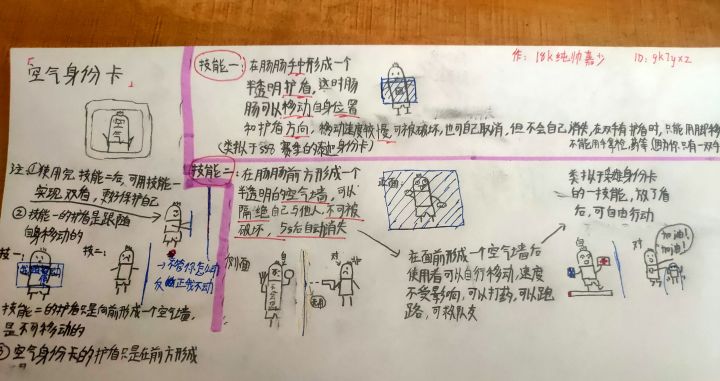 空气身份卡
作：18k纯帅嘉少
ID：9k7yxz
技能一：在肠肠手中形成一个
半透明护盾，这时肠
肠可以移动自身位置
和护盾方向，移动速度较慢，可被破坏，也可自己取消，但不会自己消失，在双手有护盾时，只能用
(类拟于S
赛季的
身份卡)
不能用手拿枪、药等(因为你只有一双手
注：①使用完技能二后，可用技能一
实现双盾，更好保护自己
②技能一的护盾是跟随
自身移动的
技一：
技二：
→不管你怎么动
反正我不动
技能二的护盾只是向前形成一个空气墙，
是不可移动的
③空气身份卡的护盾只是在前方形成
技能二：在肠肠前方形成一个
半透明的空气墙，可以
隔绝自己与他人，不可被
破坏，5s后自动消失
正面：
类拟于英雄身份卡
的一技能，放了盾
后，可自由行动
在面前形成一个空气墙后
使用者可以自行移动，速度
不受影响，可以打药，可以跑
路，可救队友
侧面
自
对
自
对
加油！
加油！